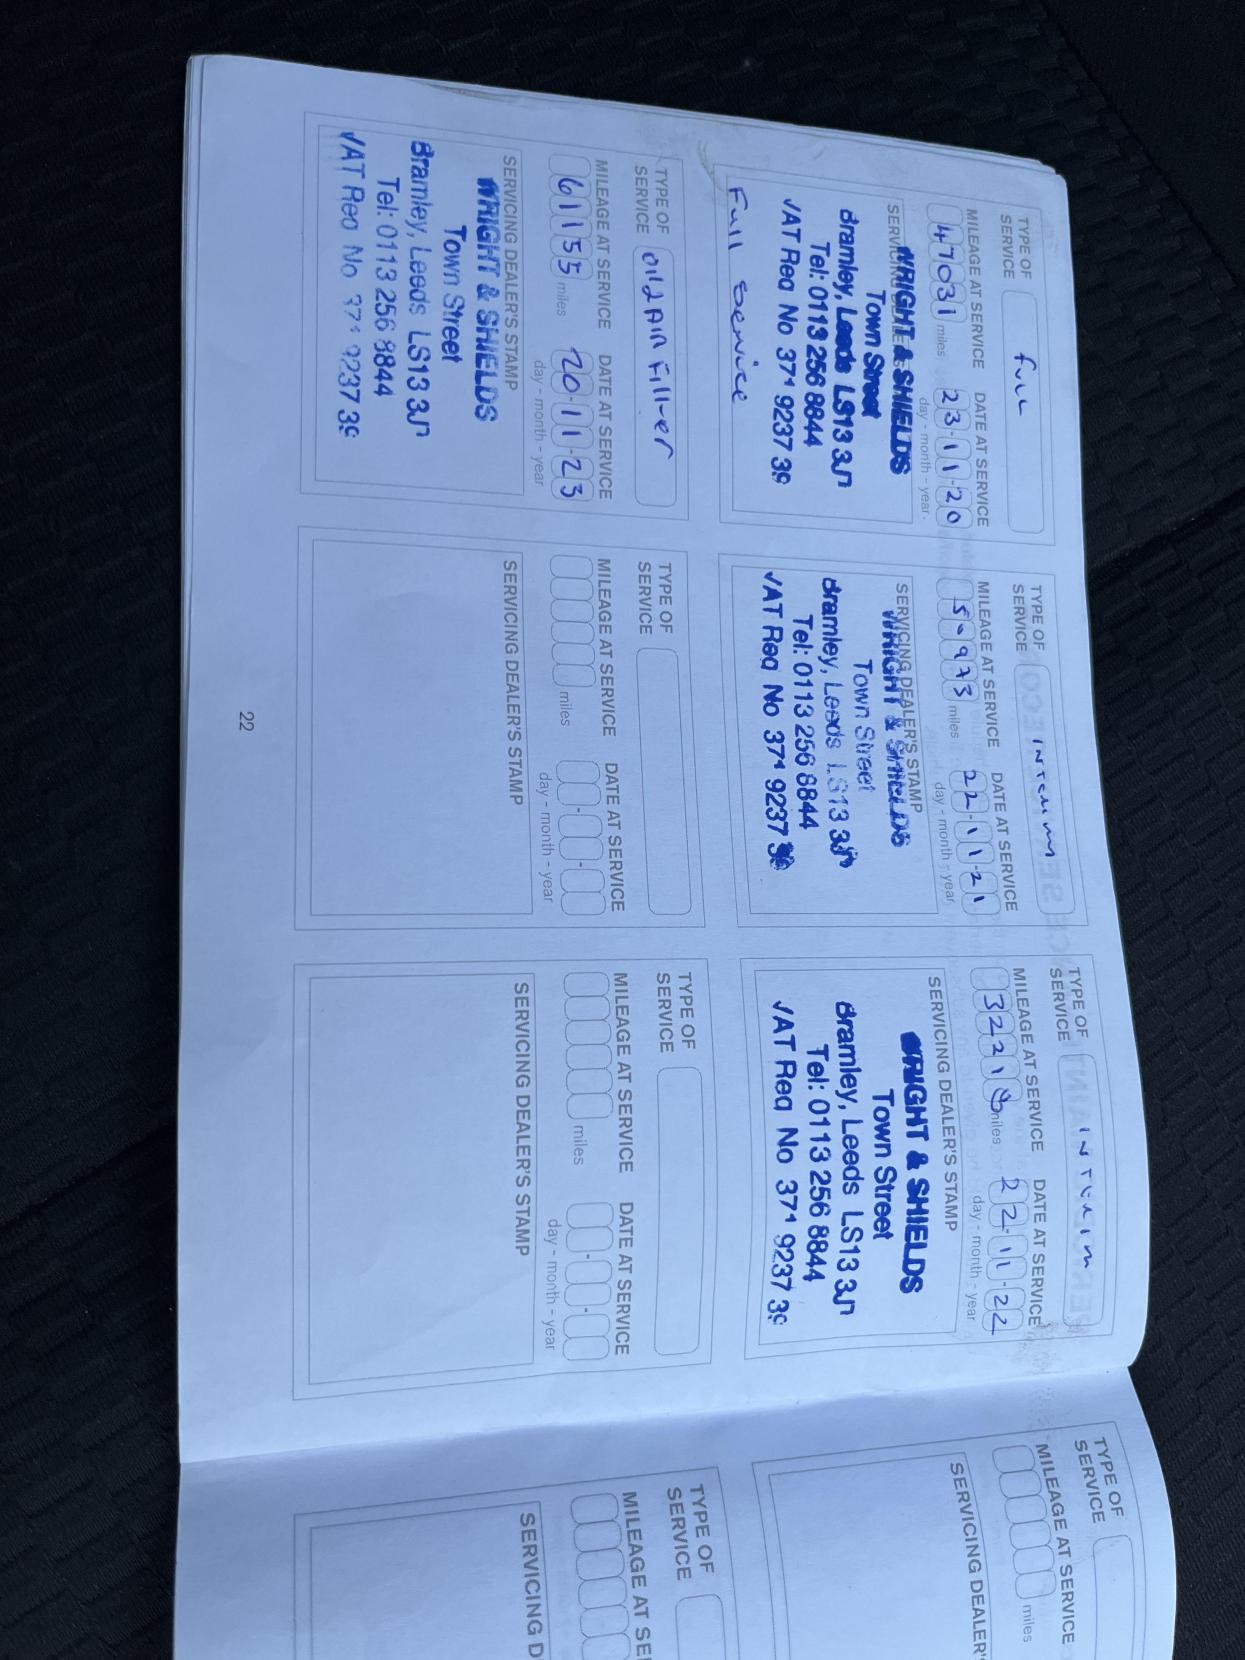 TYPE OF
SERVICE
FULL
MILEAGE AT SERVICE
DATE AT SERVICE
47031 miles
23-11-20
day - month - year
SERVICING DEALER'S STAMP
WRIGHT & SHIELDS
Town Street
Bramley, Leeds LS13 3J
Tel: 0113 256 8844
VAT Reg No 9237 39
Full Service
TYPE OF
SERVICE
INTERIM
MILEAGE AT SERVICE
DATE AT SERVICE
50973 miles
22-11-21
day - month - year
SERVICING DEALER'S STAMP
WRIGHT & SHIELDS
Town Street
Bramley, Leeds LS13 3J
Tel: 0113 256 8844
VAT Reg No 9237
TYPE OF
SERVICE
INTERIM
MILEAGE AT SERVICE
DATE AT SERVICE
miles
22-11-22
day - month - year
SERVICING DEALER'S STAMP
WRIGHT & SHIELDS
Town Street
Bramley, Leeds LS13 3J
Tel: 0113 256 8844
VAT Reg No 9237 39
TYPE OF
SERVICE
Filter
MILEAGE AT SERVICE
DATE AT SERVICE
61155 miles
20-11-23
day - month - year
SERVICING DEALER'S STAMP
WRIGHT & SHIELDS
Town Street
Bramley, Leeds LS13 3J
Tel: 0113 256 8844
VAT Reg No 9237 39
TYPE OF
SERVICE
MILEAGE AT SERVICE
DATE AT SERVICE
miles
day - month - year
SERVICING DEALER'S STAMP
TYPE OF
SERVICE
MILEAGE AT SERVICE
DATE AT SERVICE
miles
day - month - year
SERVICING DEALER'S STAMP
22
TYPE OF
SERVICE
MILEAGE AT SERVICE
miles
SERVICING DEALER'S
TYPE OF
SERVICE
MILEAGE AT SE
SERVICING D